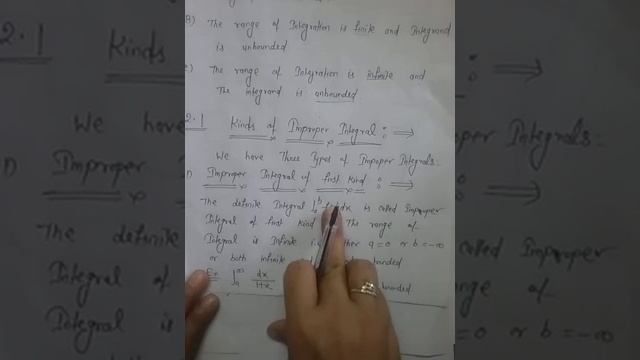 B) The range of Integration is finite and Integrand
is unbounded
The range of Integration is infinite and
The integrand is unbounded
2.1 Kinds of Improper Integral : ⇒
We have Three Types of Improper Integrals:
Improper Integral of first Kind : ⇒
The definite Integral ∫ dx is called Improper
Integral of first Kind The range of
Integral is Infinite a=0 or b=-∞
or both infinite
Ex ∫ dx